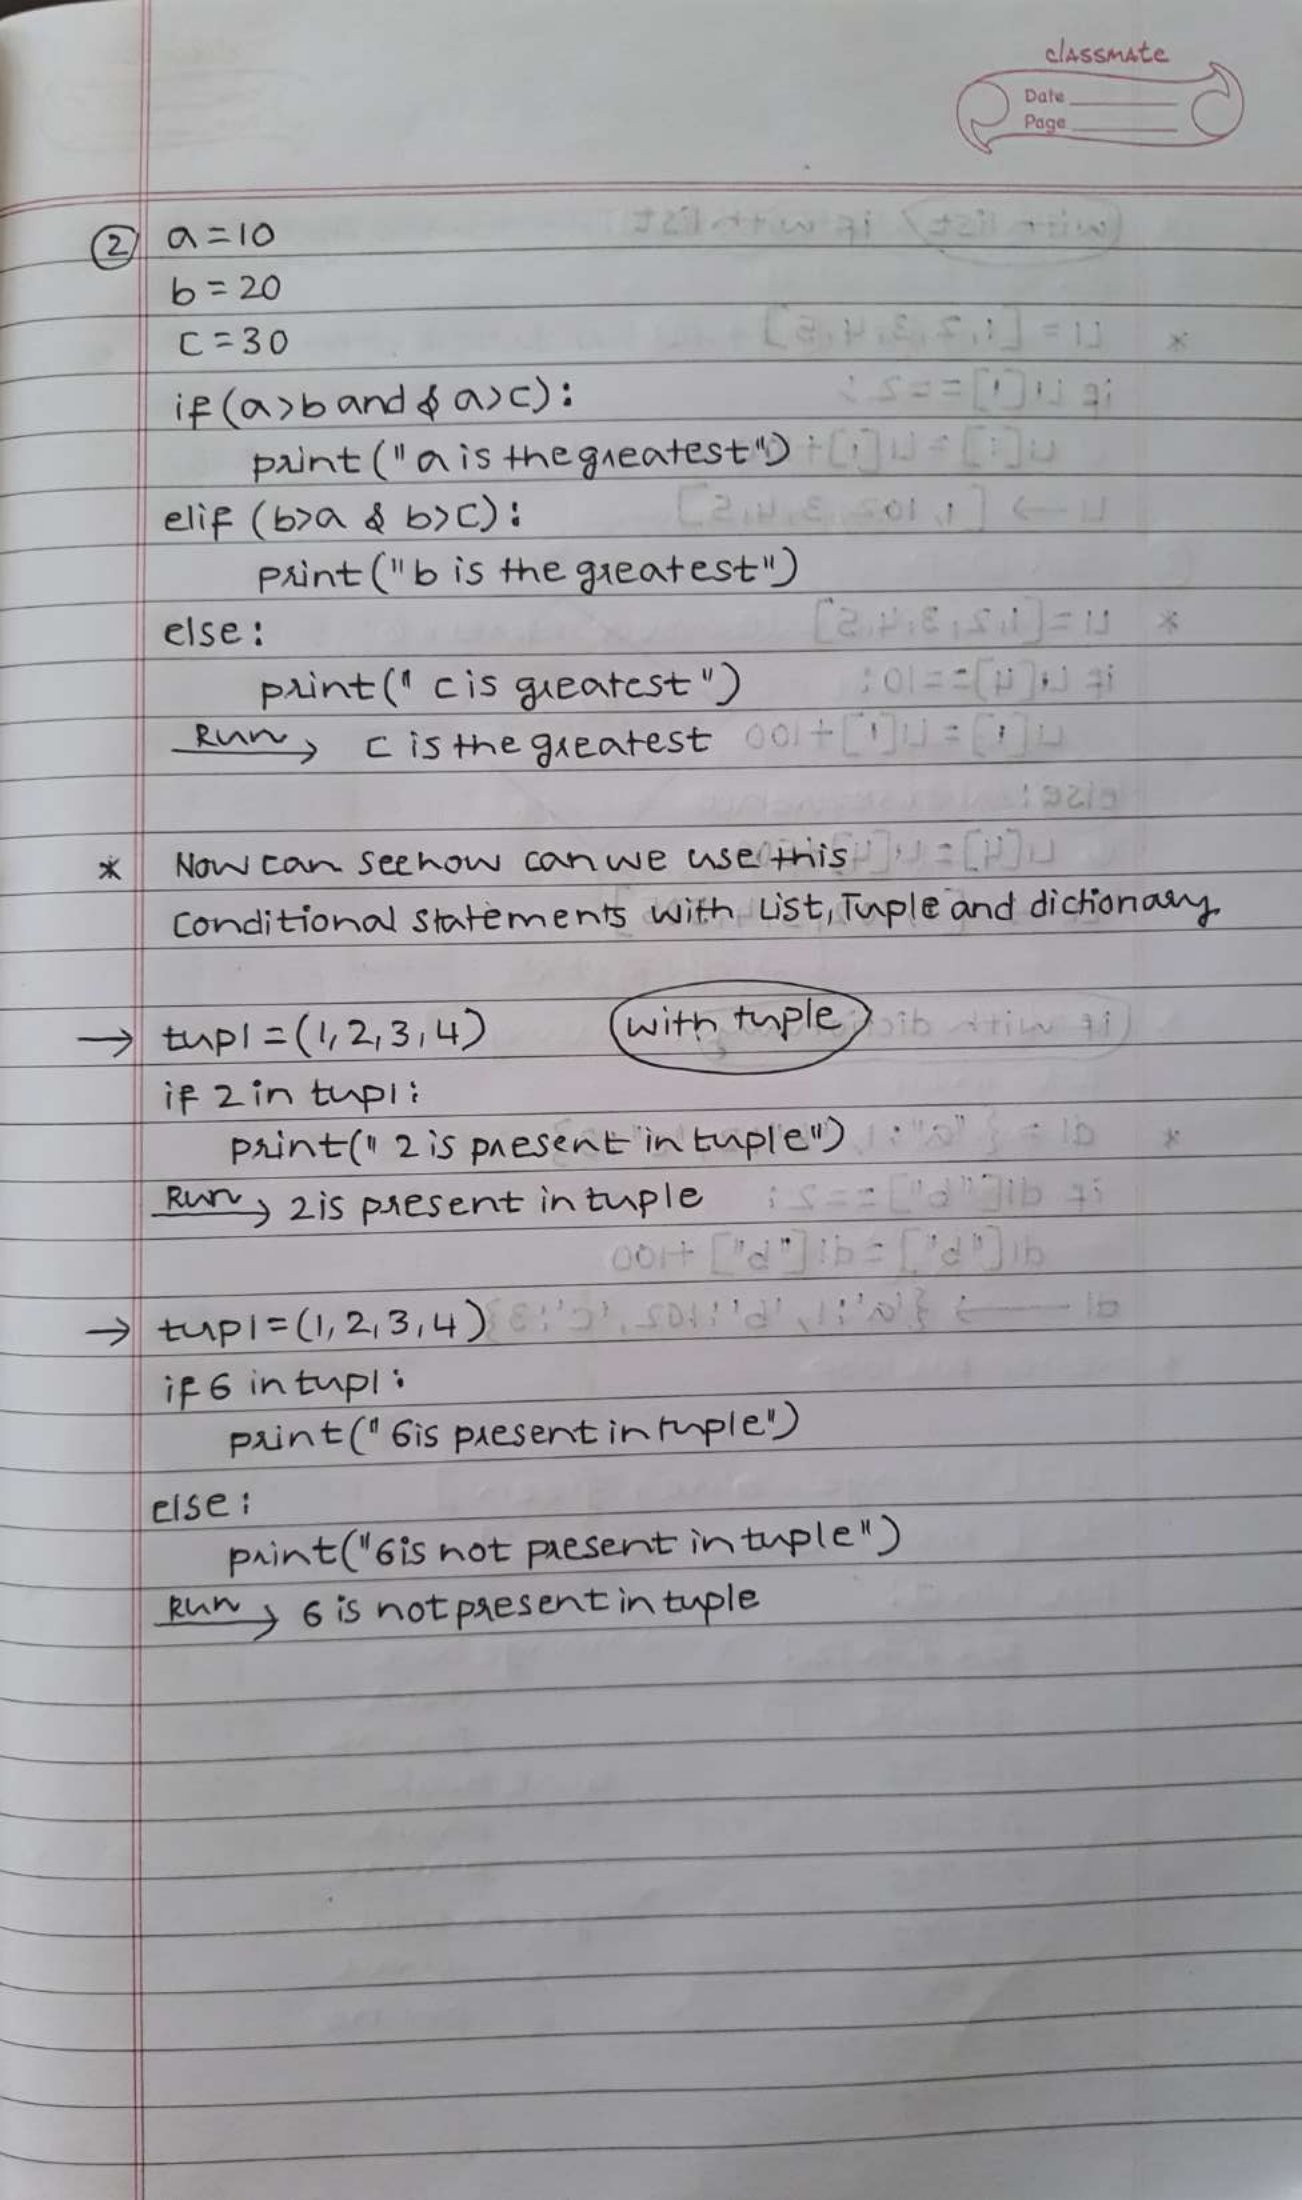 classmate
Date
Page
② a=10
b=20
c=30
if(a>b and & a>c):
print("a is the greatest")
elif (b>a & b>c):
print("b is the greatest")
else:
print(" c is greatest")
Run→ c is the greatest
* Now can see how can we use this
conditional statements with List, Tuple and dictionary
→ tup1=(1,2,3,4) with tuple
if 2 in tup1:
print(" 2 is present in tuple")
Run→ 2 is present in tuple
→ tup1=(1,2,3,4)
if 6 in tup1:
print(" 6 is present in tuple")
else:
print("6 is not present in tuple")
Run→ 6 is not present in tuple